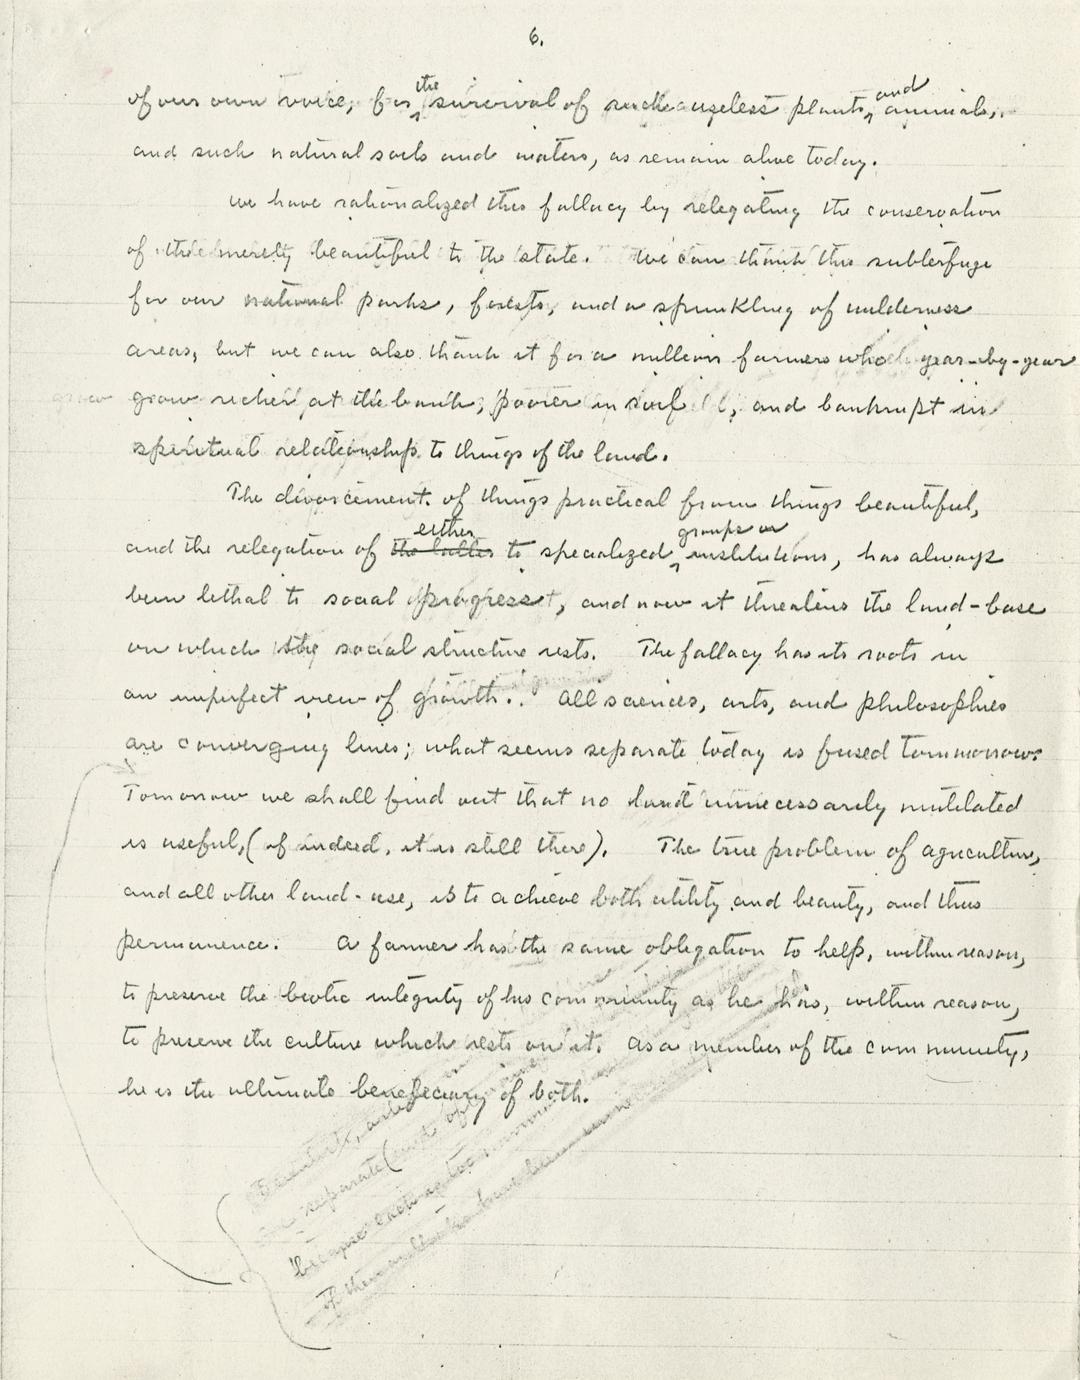 6.
of our own voice, for the survival of such useless plants, and animals,
and such natural soils and waters, as remain alive today.
We have rationalized this fallacy by relegating the conservation
of the merely beautiful to the state. We can thank this subterfuge
for our national parks, forests, and a sprinkling of wilderness
areas, but we can also thank it for a million farmers who year-by-year
grow richer at the bank, poorer in soil, and bankrupt in
spiritual relationship to things of the land.
The divorcement of things practical from things beautiful,
and the relegation of the latter either to specialized groups or institutions, has always
been lethal to social progress, and now it threatens the land-base
on which the social structure rests. The fallacy has its roots in
an imperfect view of growth. All sciences, arts, and philosophies
are converging lines; what seems separate today is fused tommorrow.
Tomorrow we shall find out that no land unnecessarily mutilated
is useful, (if indeed, it is still there). The true problem of agriculture,
and all other land-use, is to achieve both utility and beauty, and thus
permanence. A farmer has the same obligation to help, within reason,
to preserve the biotic integrity of his community as he has, within reason,
to preserve the culture which rests on it. As a member of the community,
he is the ultimate beneficiary of both.
separate
because
of the